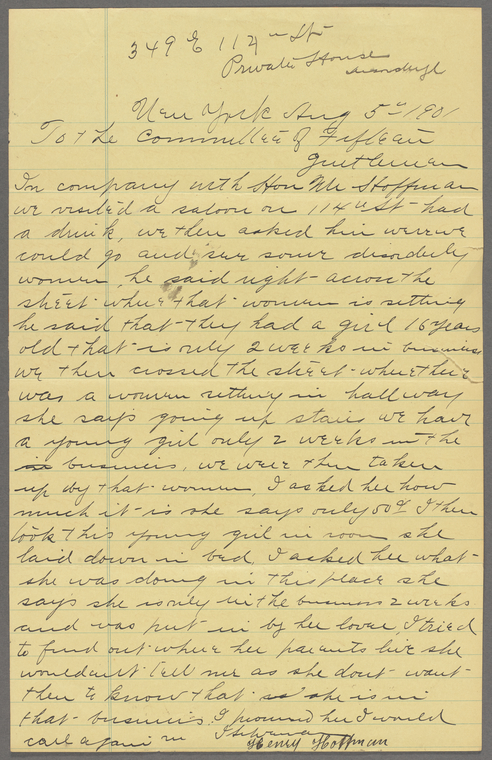 349 E 114th St
Private House
disorderly
New York Aug 5th 1901
To the Committee of Fifteen
Gentlemen
In company with Hon Mr Hoffman
we visited a saloon on 114th St had
a drink, we then asked him where we
could go and see some disorderly
women, he said right across the
street where that women is setting
he said that they had a girl 16 years
old that is only 2 weeks in business
we then crossed the street where there
was a women setting in hall way
she says going up stairs we have
a young girl only 2 weeks in the
business, we were then taken
up by that women, I asked her how
much it is she says only 50¢ I then
took this young girl in room she
laid down in bed, I asked her what
she was doing in this place she
says she is only in the business 2 weeks
and was put in by her lover, I tried
to find out where her parents live she
wouldent tell me as she dont want
them to know that she is in
that business. I promised her I would
call again in
Henry Hoffman